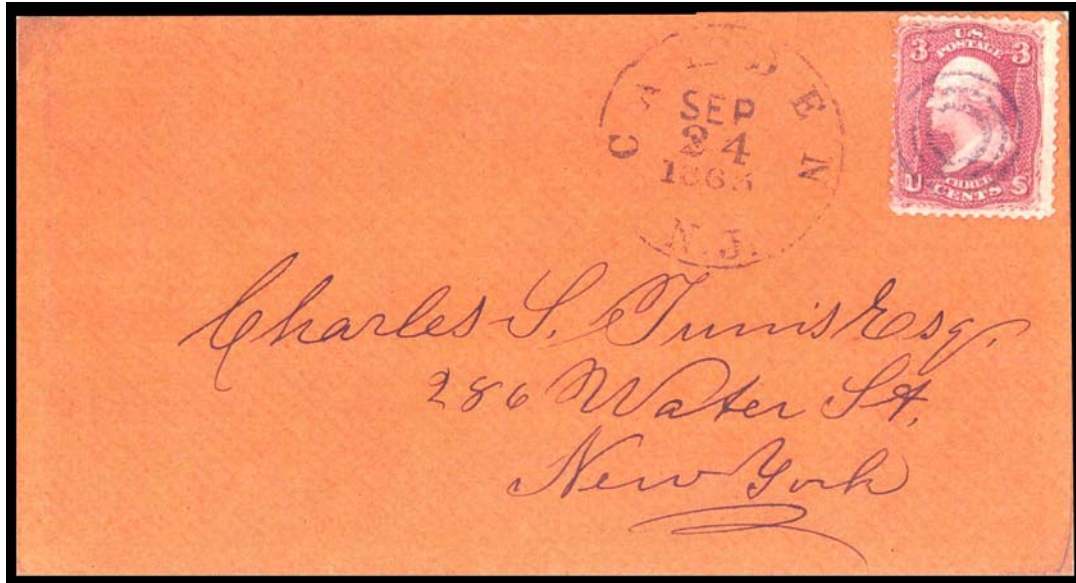 CAMDEN
SEP
24
1863
N.J.
U.S.
POSTAGE
3 3
U THREE S
CENTS
Charles S. Tunis Esq.
286 Water St.
New York